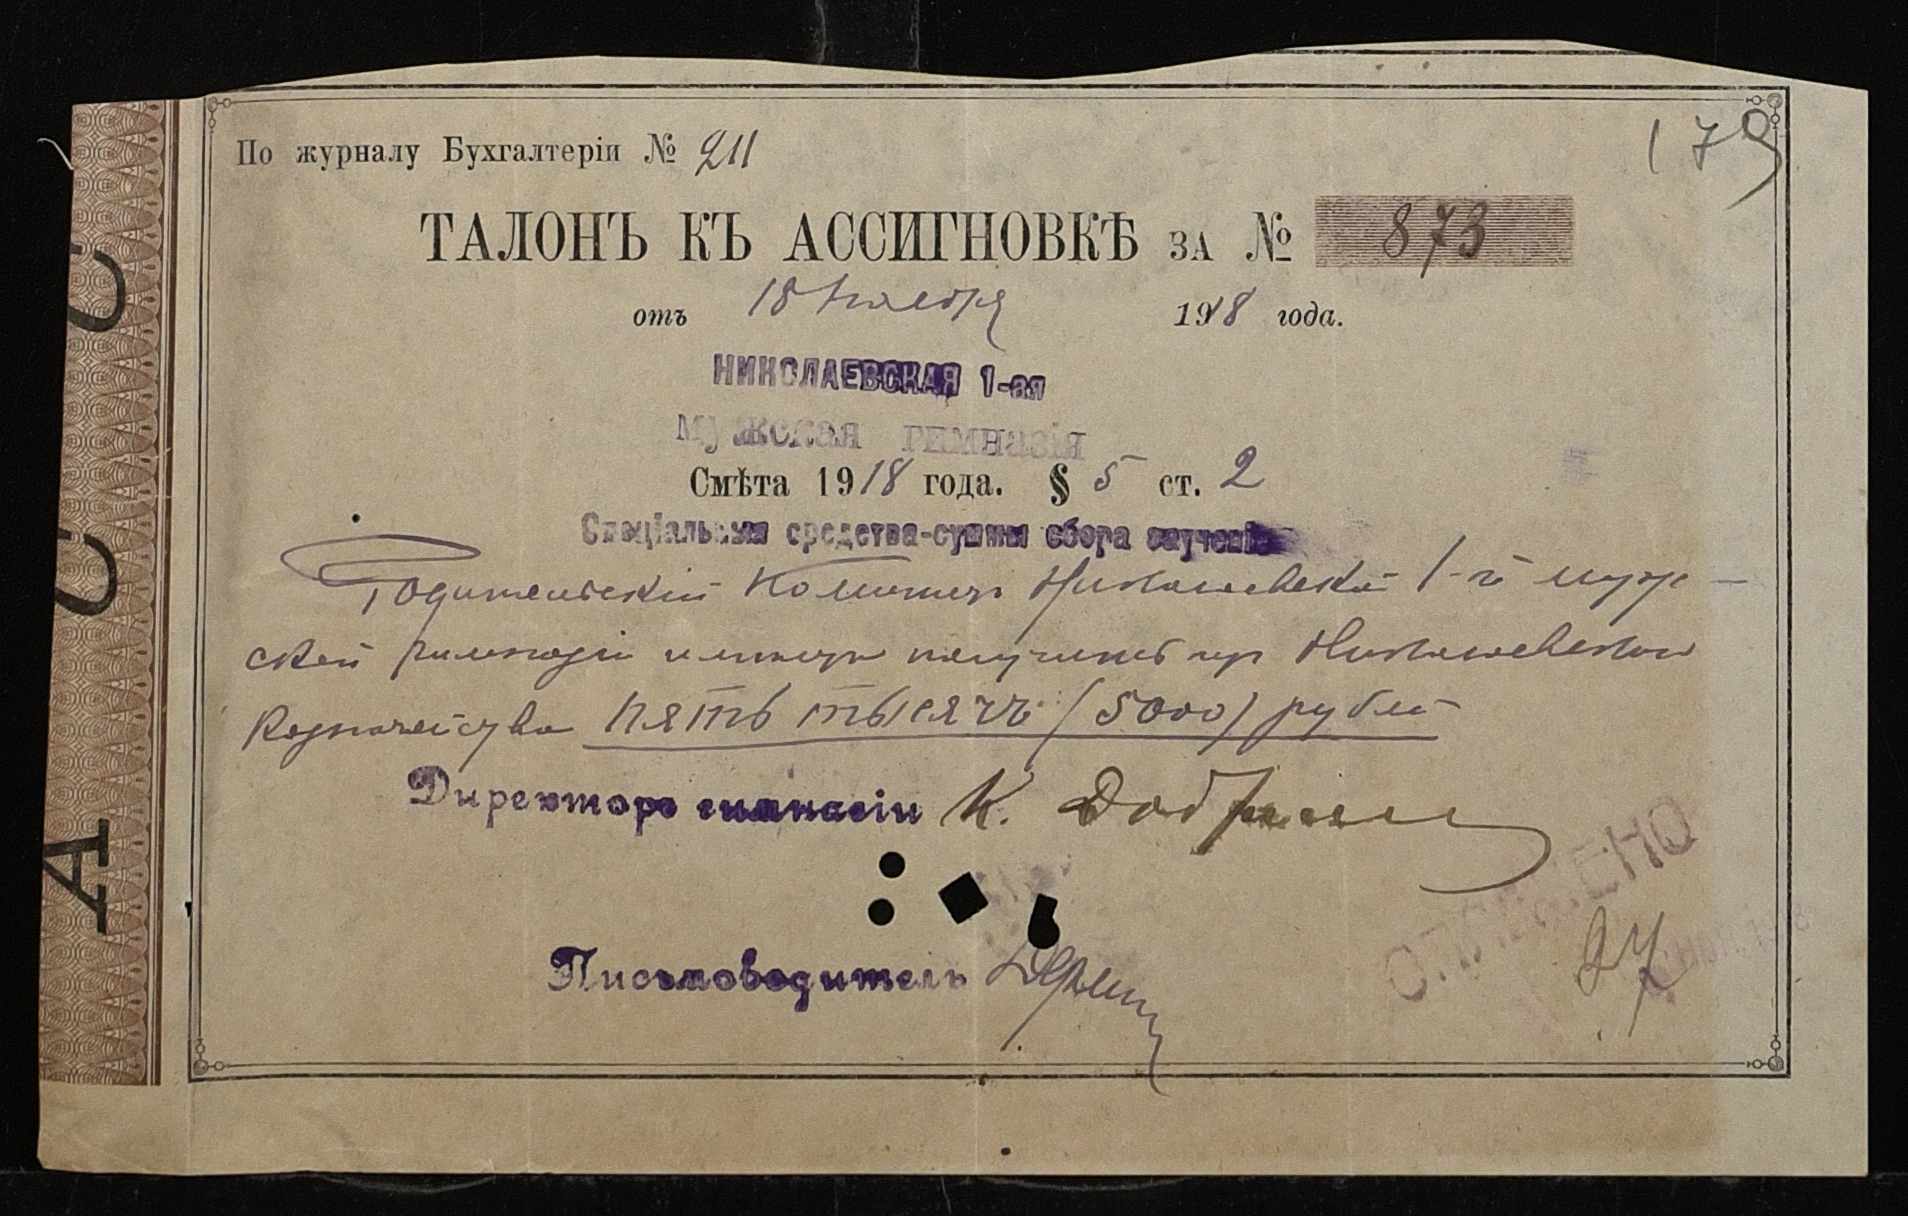 По журналу Бухгалтеріи № 211
179
ТАЛОНЪ КЪ АССИГНОВКѢ ЗА № 873
отъ 18 ноября 1918 года.
НИКОЛАЕВСКАЯ 1-ая
мужская гимназія
Смѣта 1918 года. § 5 ст. 2
Спеціальныя средства-суммы сбора за ученіе
Родительскій Комитетъ Николаевской 1-й муж-
ской гимназіи имѣетъ получить изъ Николаевскаго
Казначейства пять тысячъ (5000) рублей
Директоръ гимназіи К.
Письмоводитель
ОПЛАЧЕНО
А С С